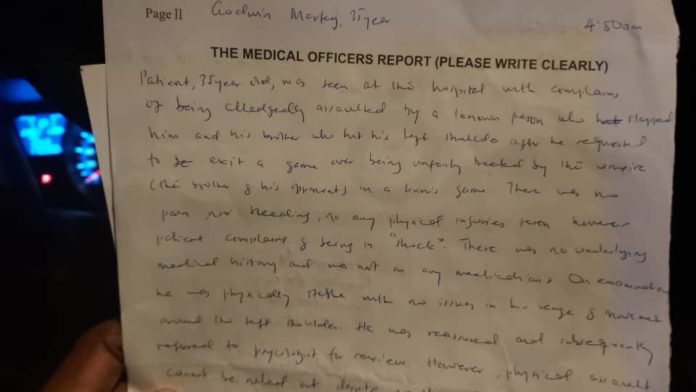 Page II Godwin Martey, 35 year
4:50am
THE MEDICAL OFFICERS REPORT (PLEASE WRITE CLEARLY)
Patient, 35year old, was seen at this hospital with complains
of being alledgedly assaulted by a known person who slapped
him and his brother who hit his left shoulder after he requested
to exit a game over being unfairly treated by the umpire
(the brother of his opponent) in a tennis game. There was no
pain, nor bleeding, no any physical injuries seen however
patient complains of being in "shock". There was no underlying
medical history and was not on any medications. On examination
he was physically stable with no issues in his range of movement
around the left shoulder. He was reassured and subsequently
referred to psychologist for review. However, physical assault
cannot be ruled out despite